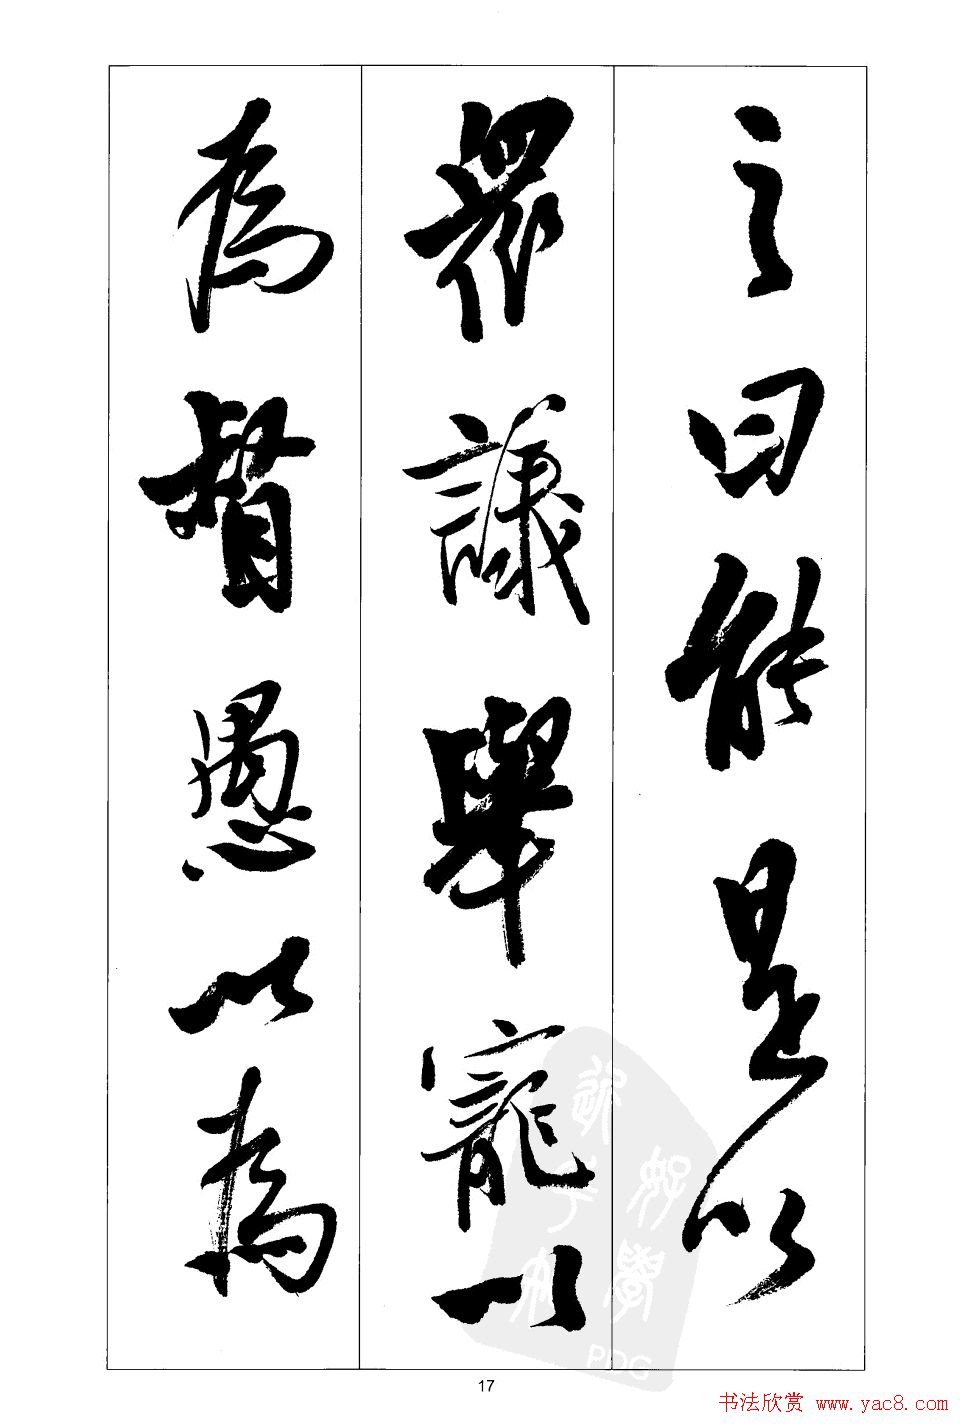 之曰能是以
眾議舉寵以
為督愚以為
17
书法欣赏 www.yac8.com
PDG